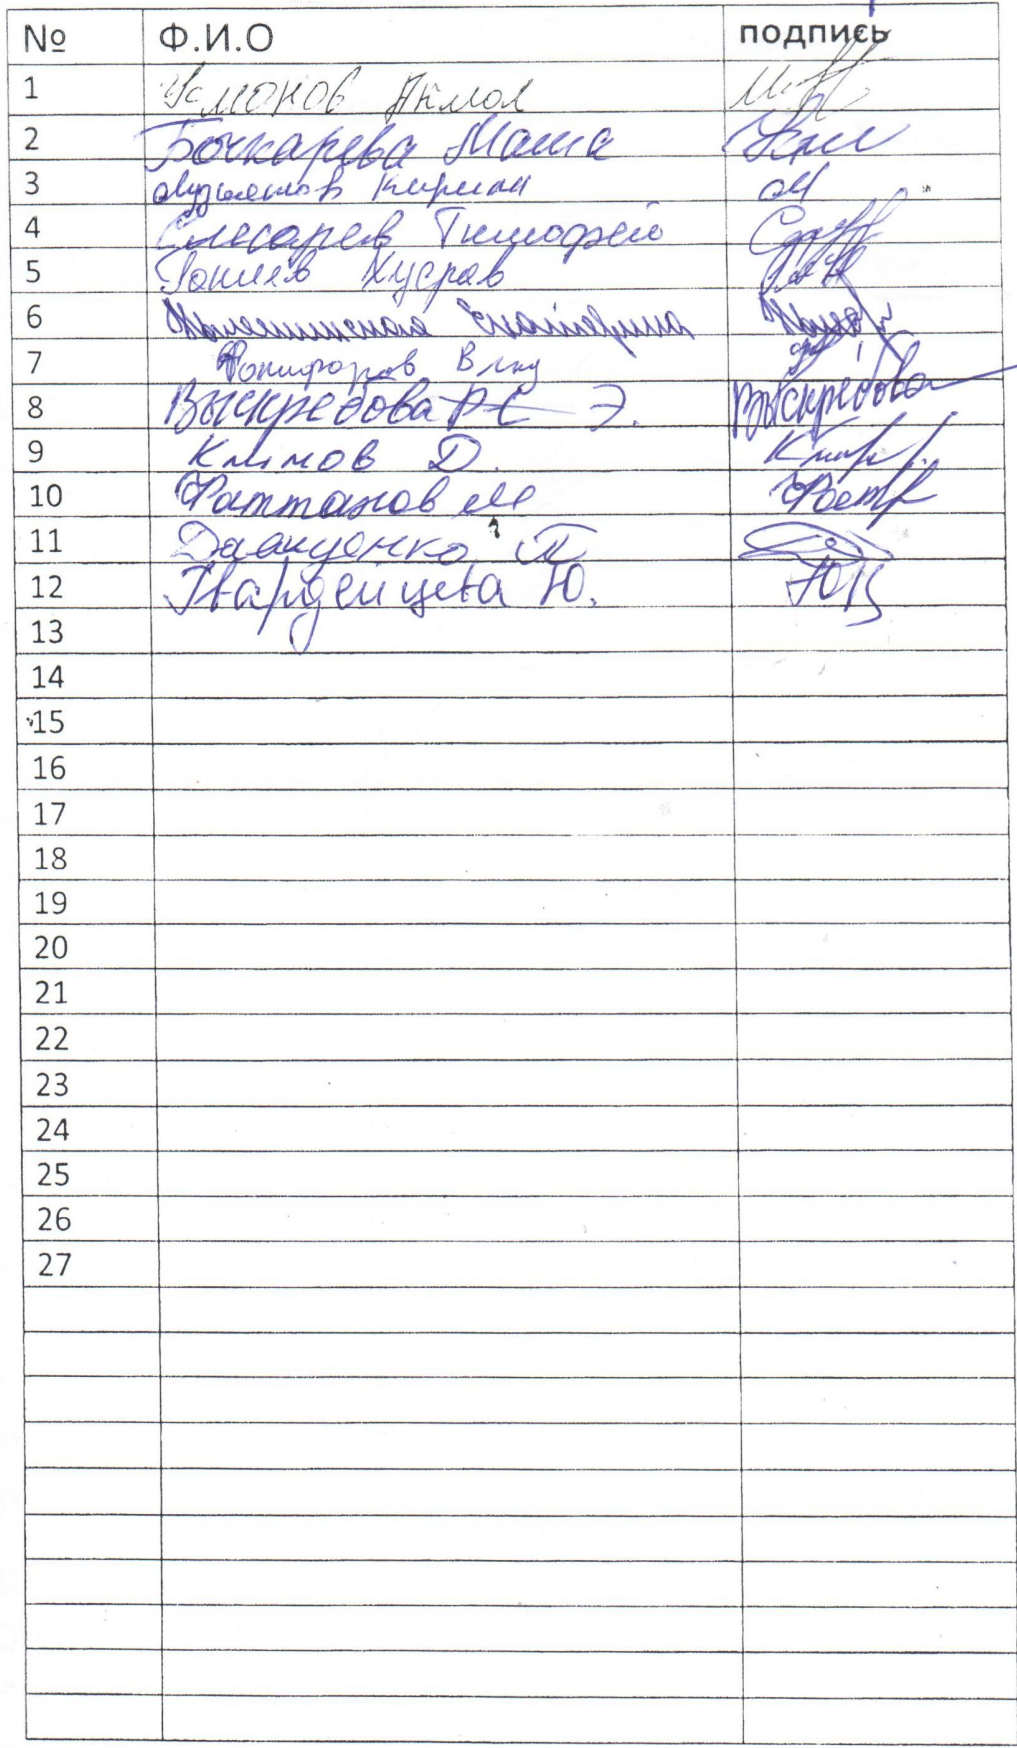 № Ф.И.О подпись
1 Усмонов Акмал
2 Бочкарева Маша
3 Кирилл
4 Слесарев Тимофей
5 Гониев Хусрав
6 Екатерина
7 Никифоров Влад
8 Выскребова Э. Выскребова
9 Климов Д.
10 Фаттахов М
11 Т
12 Гвардейцева Ю.
13
14
15
16
17
18
19
20
21
22
23
24
25
26
27